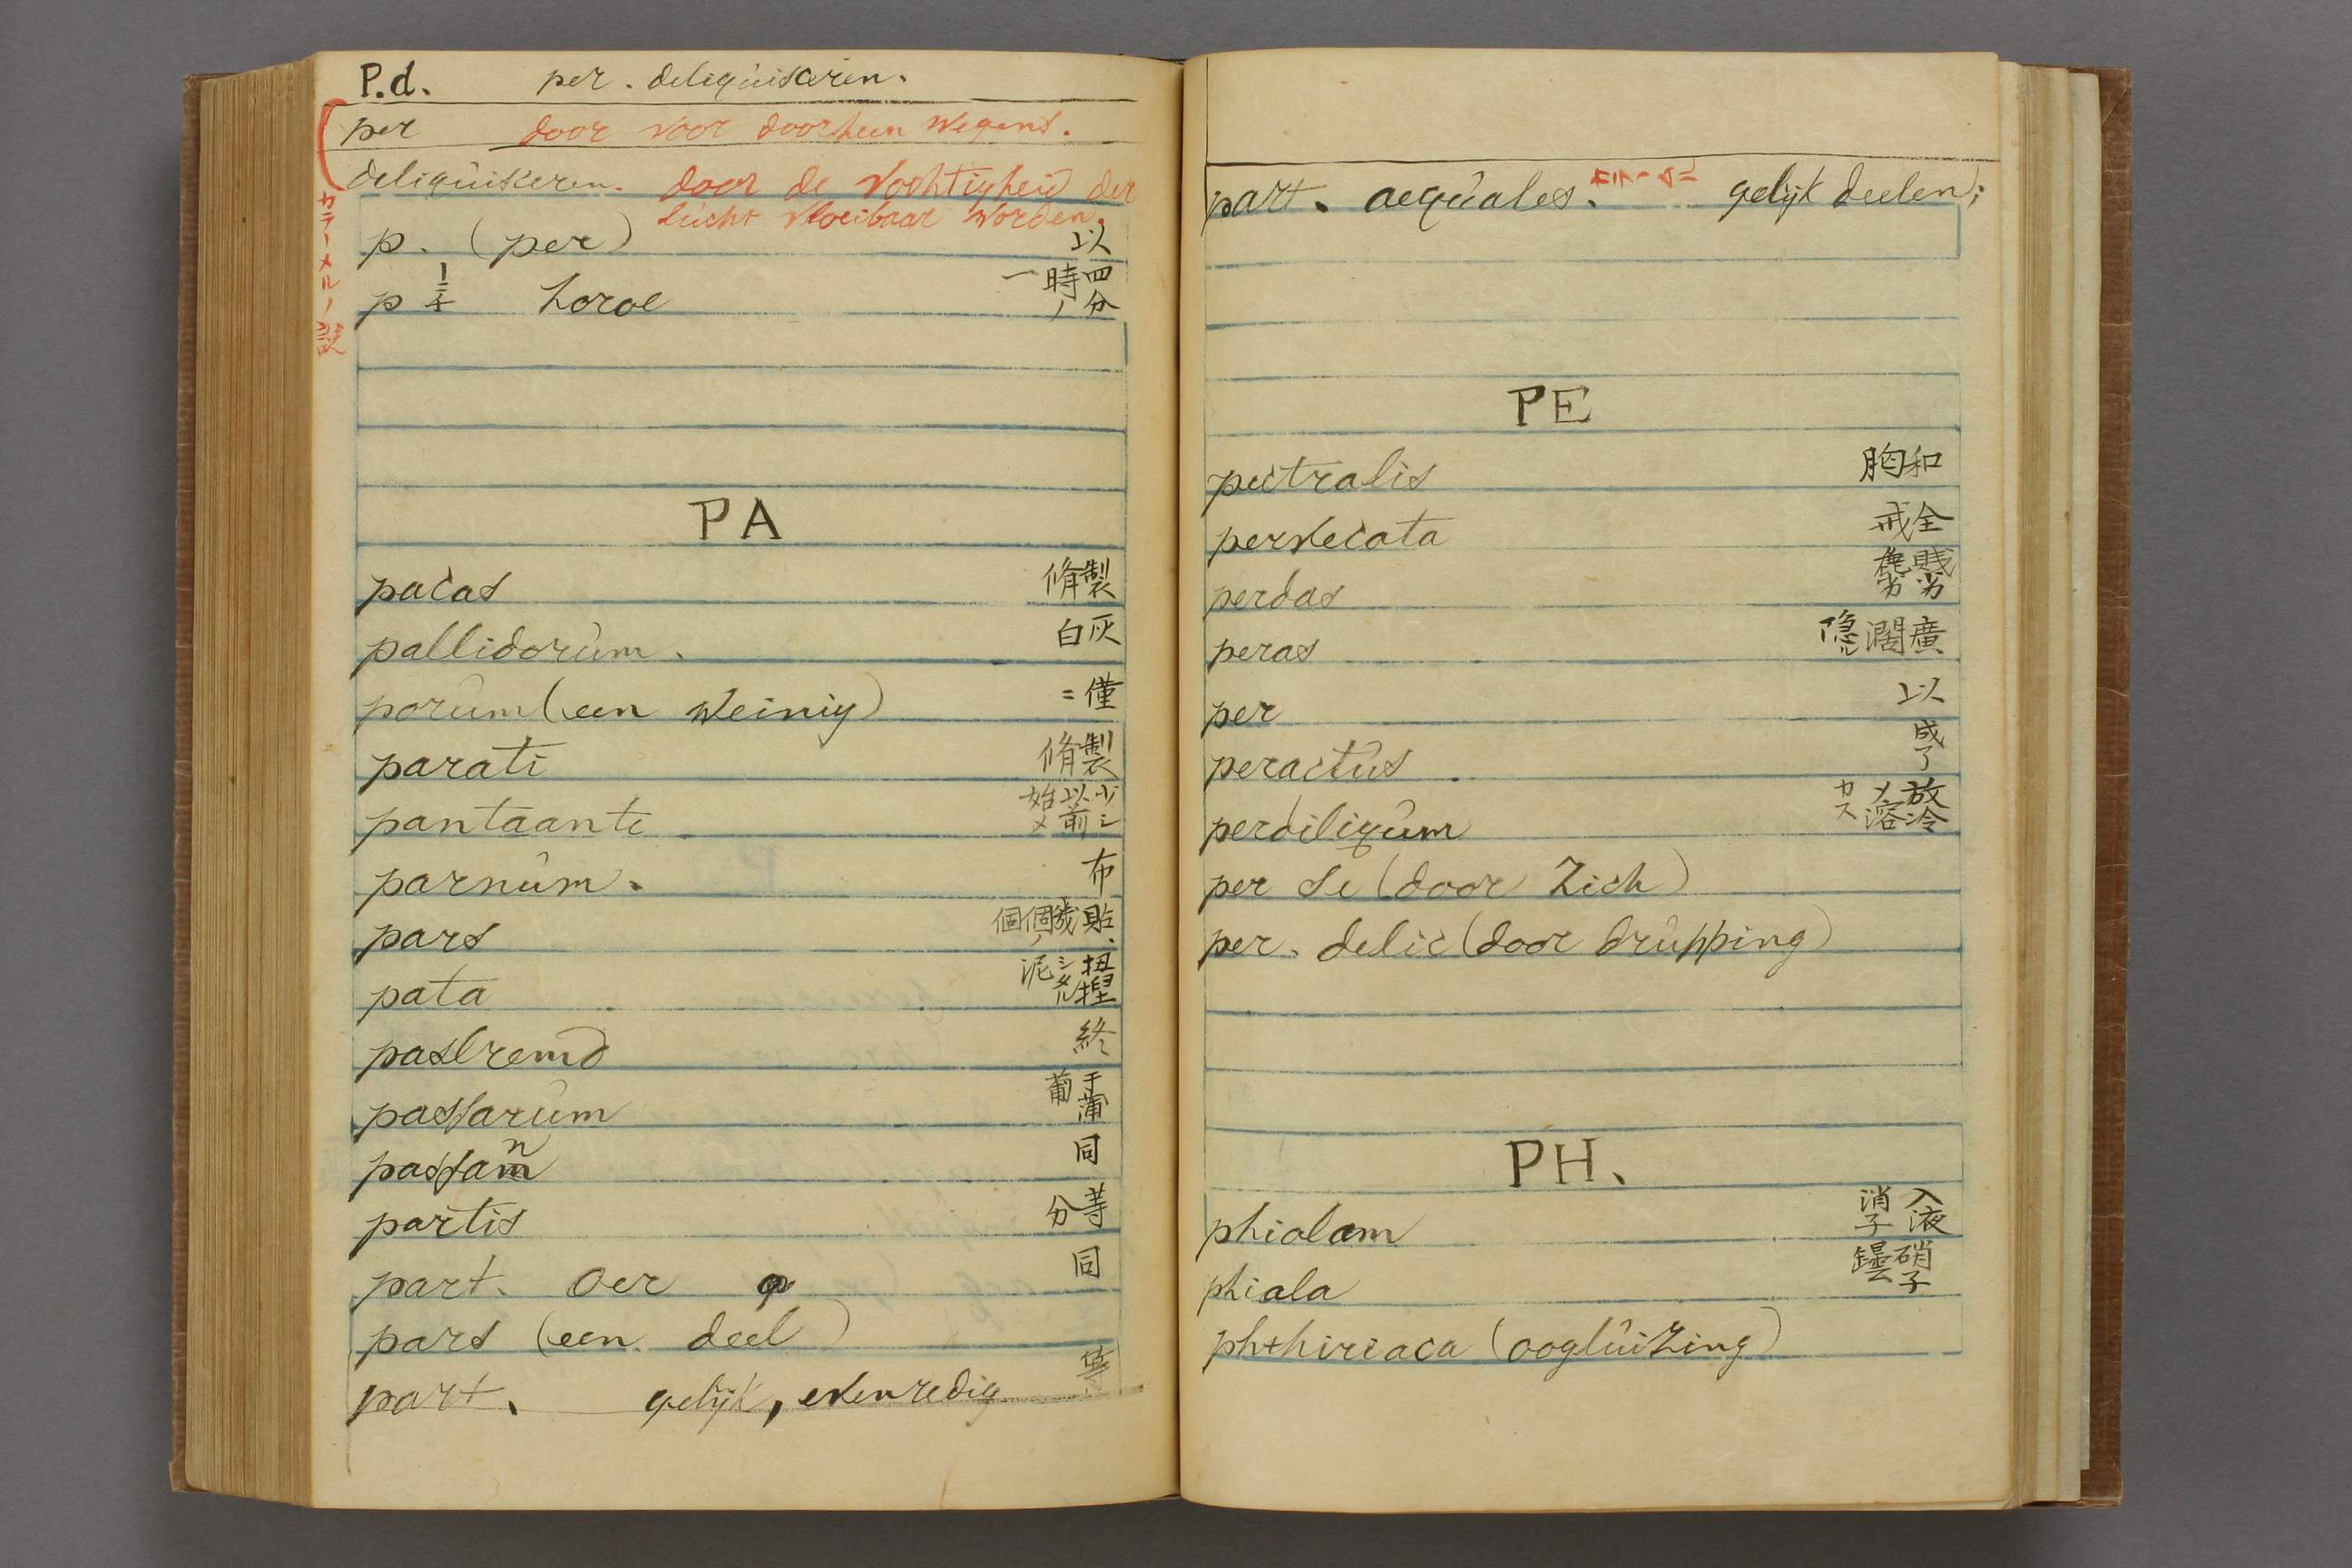 P.d. per. deliquisceren.
per door voor doorheen wegens.
deliquisceren. door de vochtigheid der
lucht vloeibaar worden.
カテーメルノ説
p. (per) 以
p 1/4 horae 四分一時ノ
PA
pacas 製脩
pallidorum. 灰白
porum (een weinig) 僅ニ
parati 製脩
pantaante 少シ以前始メ
parnum. 布
pars 貼、幾個ノ個
pata 扭捏シタル泥
paslremo 終
passarum 于蒲葡
passam n 同
partis 等分
part. oer 同
pars (een deel)
part. gelijk, evenredig 等
part. aequales. gelijk deelen;
PE
pectralis 和胸
pervecata 全戒
perdas 賎劣麁劣
peras 廣濶隠ル
per 以
peractus 成了
perdiliqum 放冷メ溶カス
per se (door zich)
per. delic (door drupping)
PH.
phiolam 入液消子
phiala 硝子罎
phthiriaca (oogluizing)